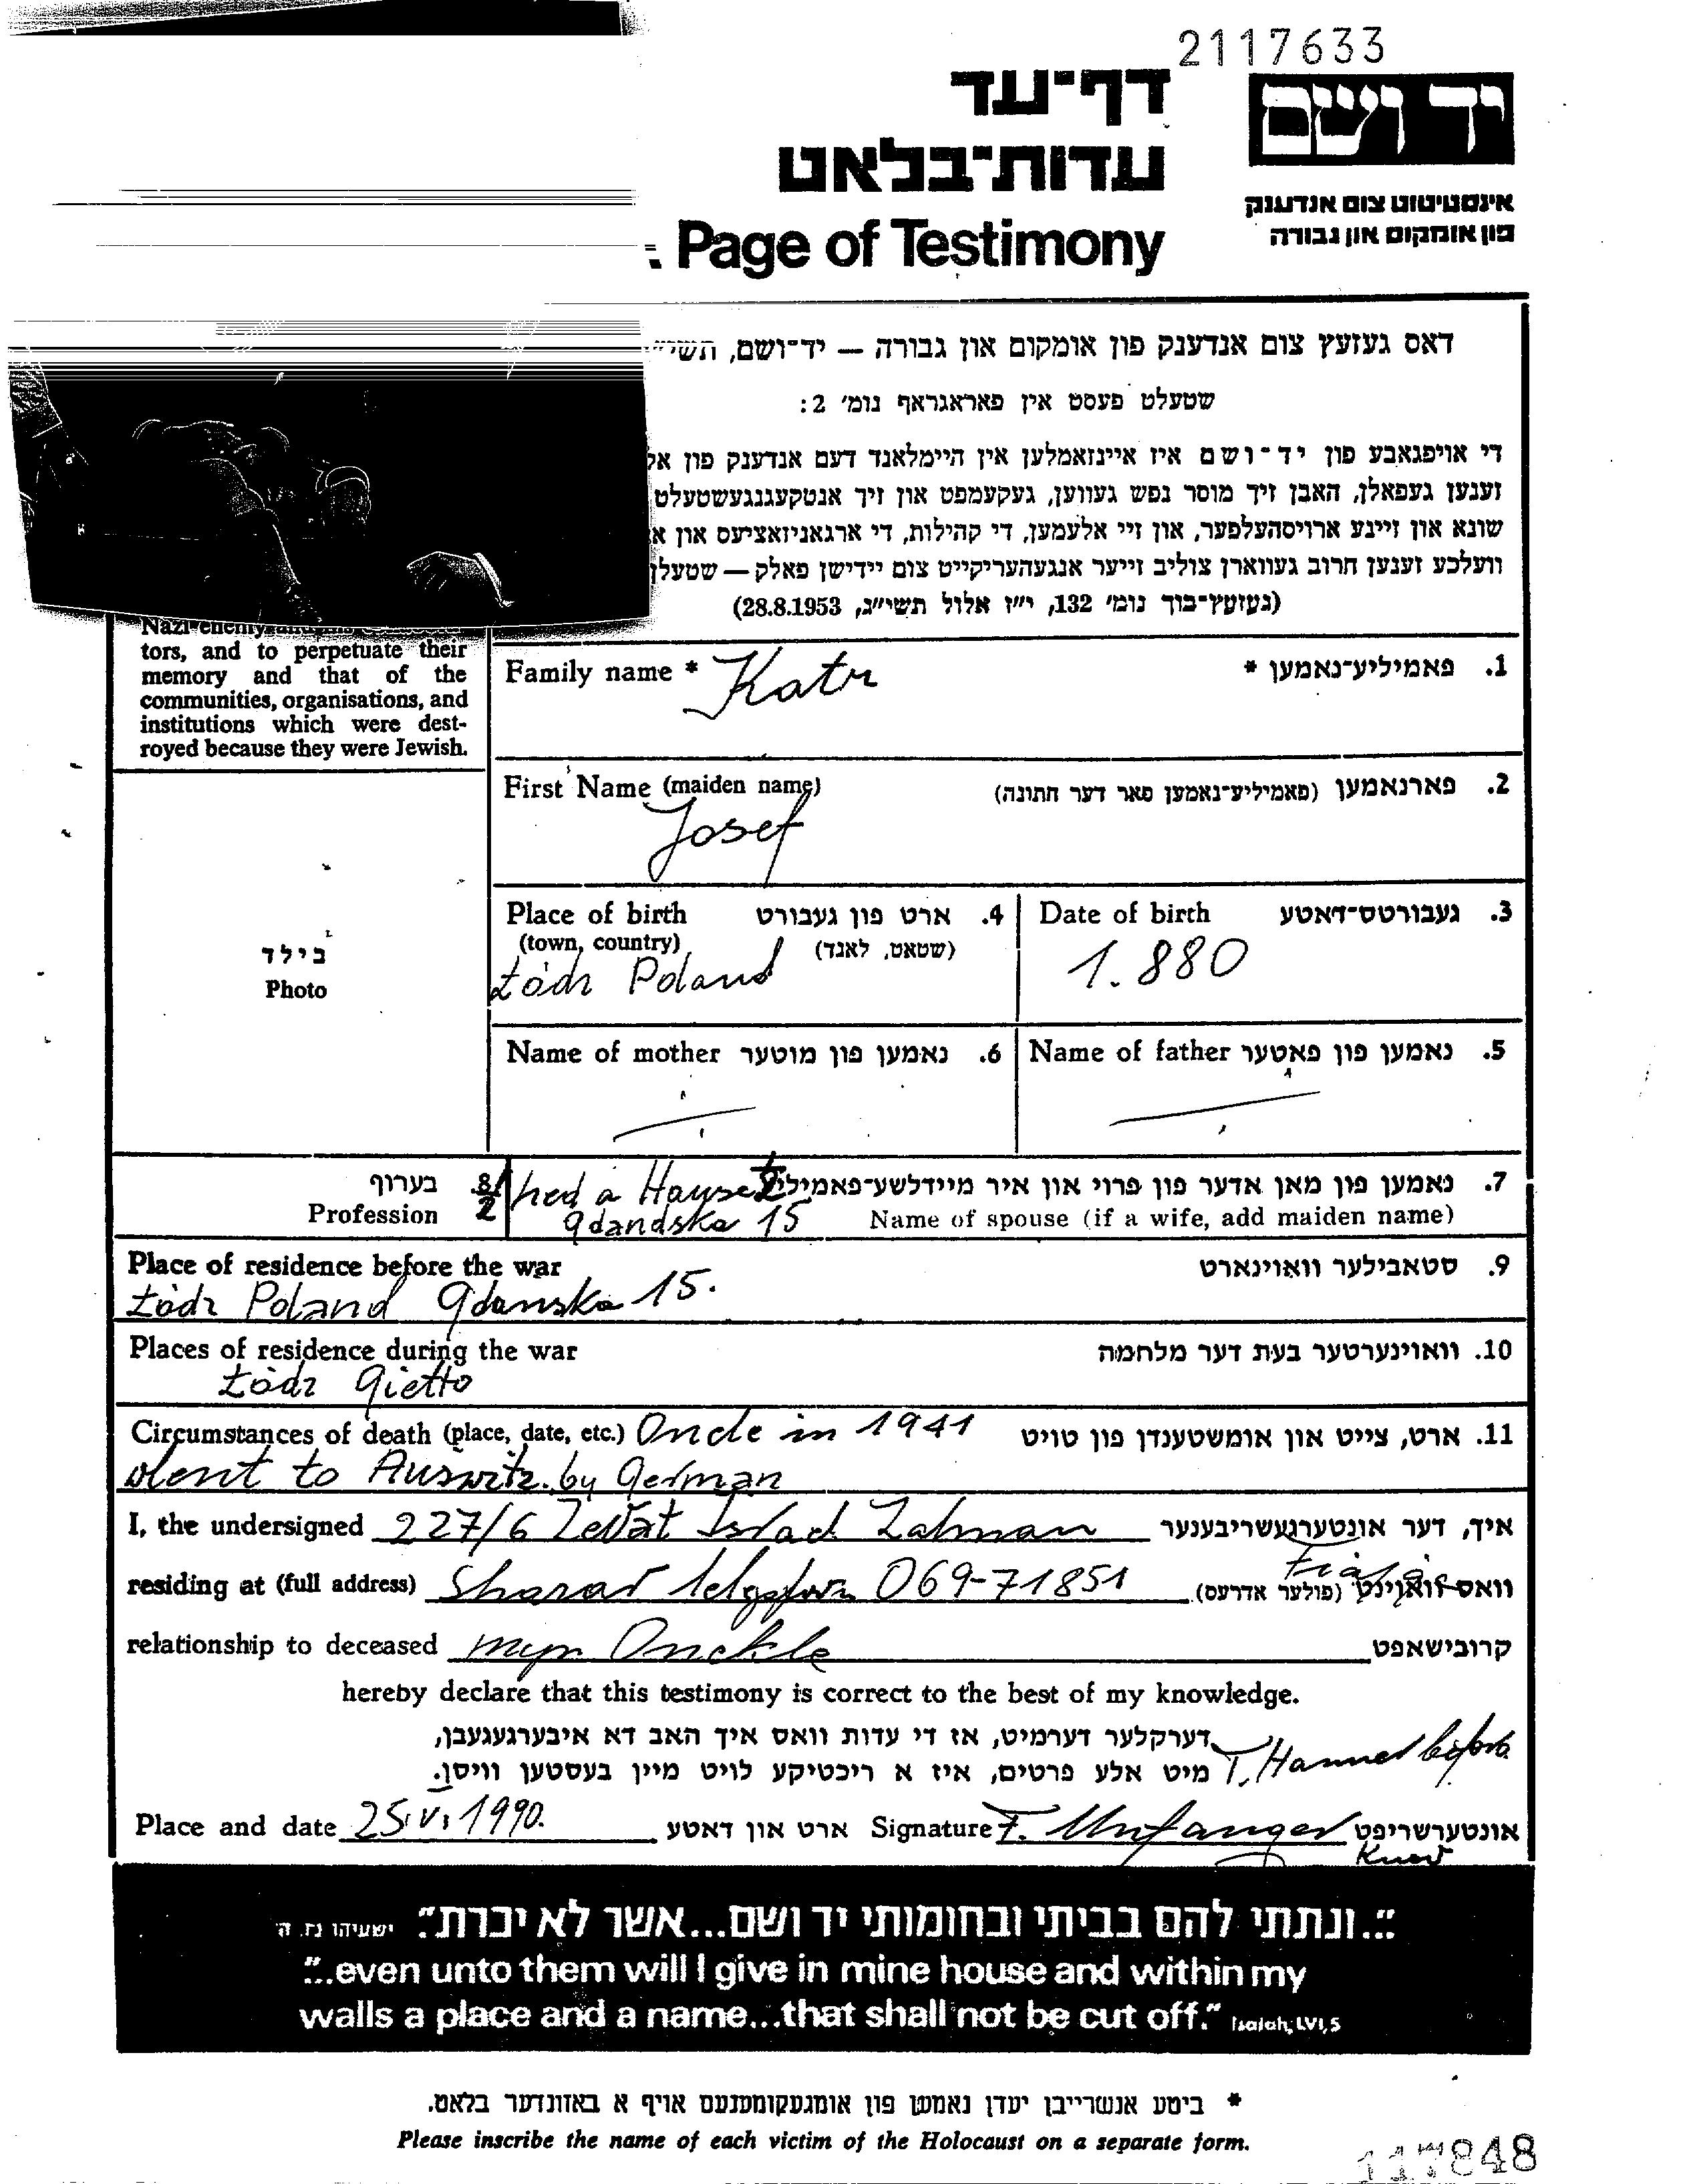 2117633
דף־עד
יד ושם
עדות־בלאט
אינסטיטוט צום אנדענק
פון אומקום און גבורה
Page of Testimony
דאס געזעץ צום אנדענק פון אומקום און גבורה — יד־ושם,
שטעלט פעסט אין פאראגראף נומ׳ 2:
די אויפגאבע פון יד־ושם איז איינזאמלען אין היימלאנד דעם אנדענק פון
זענען געפאלן, האבן זיך מוסר נפש געווען, געקעמפט און זיך אנטקעגנגעשטעלט
שונא און זיינע ארויסהעלפער, און זיי אלעמען, די קהילות, די ארגאניזאציעס און
וועלכע זענען חרוב געווארן צוליב זייער אנגעהעריקייט צום יידישן פאלק — שטעלן
(געזעץ־בוך נומ׳ 132, י״ז אלול תשי״ג, 28.8.1953)
Nazi enemy
tors, and to perpetuate their
memory and that of the
communities, organisations, and
institutions which were dest-
royed because they were Jewish.
Family name * Katz
1. פאמיליע־נאמען *
First Name (maiden name)
2. פארנאמען (פאמיליע־נאמען פאר דער חתונה)
Josef
Place of birth 4. ארט פון געבורט
(town, country) (שטאט, לאנד)
Łódz Poland
Date of birth 3. געבורטס־דאטע
1.880
בילד
Photo
Name of mother 6. נאמען פון מוטער
Name of father 5. נאמען פון פאטער
בערוף
Profession
8/
2
hed a Hayse
gdandska 15
7. נאמען פון מאן אדער פון פרוי און איר מיידלשע־פאמיליע
Name of spouse (if a wife, add maiden name)
Place of residence before the war
9. סטאבילער וואוינארט
Łódz Poland Gdanska 15.
Places of residence during the war
10. וואוינערטער בעת דער מלחמה
Łódz Gietto
Circumstances of death (place, date, etc.) Oncle in 1941
11. ארט, צייט און אומשטענדן פון טויט
went to Auswitz by German
I, the undersigned 227/6 Israel Zalman
איך, דער אונטערגעשריבענער
residing at (full address) 069-71851
וואס וואוינט (פולער אדרעס)
relationship to deceased myn Onckle
קרובישאפט
hereby declare that this testimony is correct to the best of my knowledge.
דערקלער דערמיט, אז די עדות וואס איך האב דא איבערגעגעבן,
מיט אלע פרטים, איז א ריכטיקע לויט מיין בעסטען וויסן.
Place and date 25.VI.1990. ארט און דאטע
Signature F. Unfanger אונטערשריפט
"...ונתתי להם בביתי ובחומותי יד ושם...אשר לא יכרת." ישעיהו נו, ה
"...even unto them will I give in mine house and within my
walls a place and a name...that shall not be cut off." Isaiah, LVI, 5
* ביטע אנשרייבן יעדן נאמען פון אומגעקומענעם אויף א באזונדער בלאט.
Please inscribe the name of each victim of the Holocaust on a separate form.